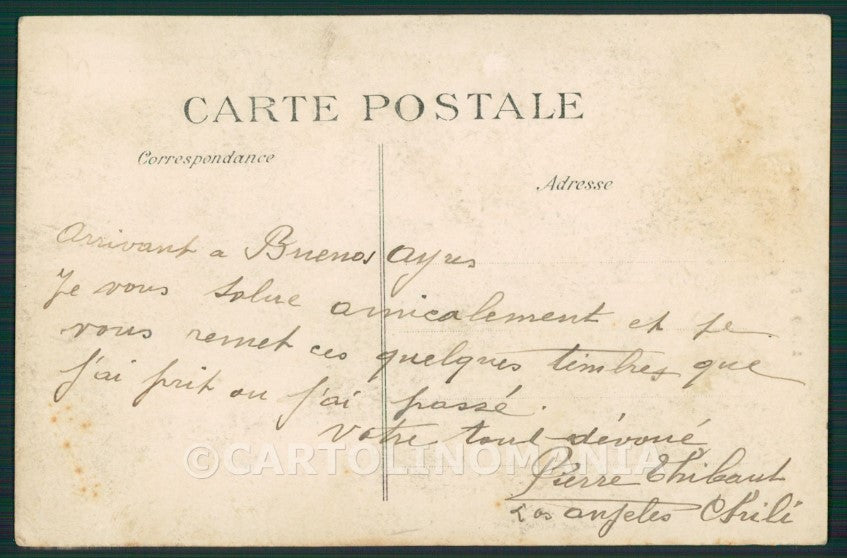 CARTE POSTALE
Correspondance
Adresse
Arrivant a Buenos Ayres
Je vous salue amicalement et je
vous remet ces quelques timbres que
j'ai prit ou j'ai passé.
Votre tout dévoué
Pierre Thibaut
Los Angeles Chili
©CARTOLINOMANIA